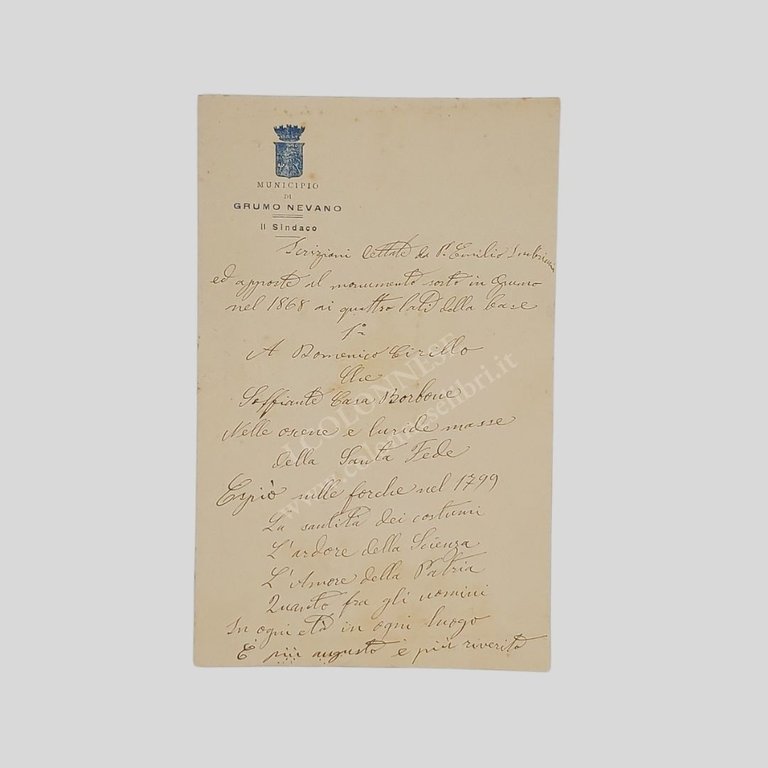 MUNICIPIO
DI
GRUMO NEVANO
Il Sindaco
Iscrizioni dettate da P. Emilio Imbriani
ed apposte al monumento sorto in Grumo
nel 1868 ai quattro lati della base
1°
A Domenico Cirillo
Che
Soffiante Casa Borbone
Nelle oscene e luride masse
della Santa Fede
Espiò sulle forche nel 1799
La santità dei costumi
L'ardore della Scienza
L'Amore della Patria
Quanto fra gli uomini
In ogni età in ogni luogo
È più augusto e più riverito
COLONNESE
www.colonneselibri.it